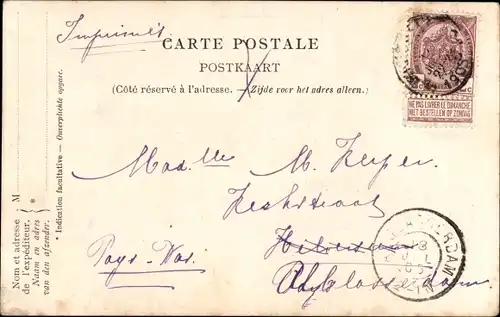 Imprimés
CARTE POSTALE
POSTKAART
(Côté réservé à l'adresse. — Zijde voor het adres alleen.)
NE PAS LIVRER LE DIMANCHE
NIET BESTELLEN OP ZONDAG
Mad lle M. Keyser
Kerkstraat
Pays-Bas.
Hilversum
Alblasserdam
* Indication facultative — Onverplichte opgave.
Nom et adresse — M
de l'expéditeur. *
Naam en adres
van den afzender.